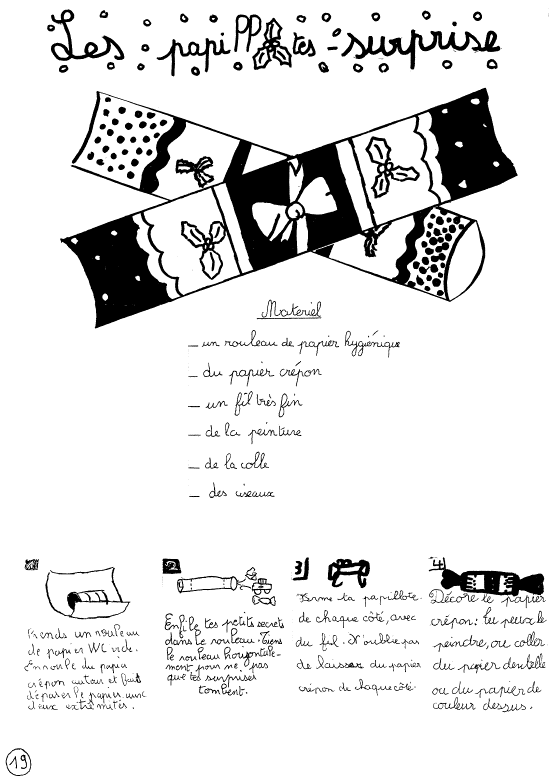 Les papiPPotes-surprise
Matériel
_ un rouleau de papier hygiénique
_ du papier crépon
_ un fil très fin
_ de la peinture
_ de la colle
_ des ciseaux
1
Prends un rouleau
de papier WC vide.
Enroule du papier
crépon autour et fait
dépasser le papier, aux
deux extrémités.
2
Enfile tes petits secrets
dans le rouleau. Tiens
le rouleau horizontale-
ment pour ne pas
que tes surprises
tombent.
3
Ferme ta papillote
de chaque côté, avec
du fil. N'oublie pas
de laisser du papier
crépon de chaque côté.
4
Décore le papier
crépon: tu peux le
peindre, ou coller
du papier dentelle
ou du papier de
couleur dessus.
19